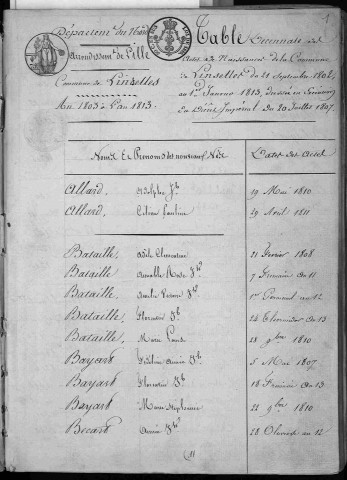 1
Département du Nord
Arrondissem. de Lille
Commune de Linselles
An 1803 à l'an 1813.
Table Décennale des
Actes de Naissances de la Commune
de Linselles du 21 Septembre 1802,
au 1er Janvier 1813, dressée en Exécution
du Décret Impérial du 20 Juillet 1807.
Noms Et Prenoms des nouveaux Nés Dates des Actes
Allard, Adolphe Jh 19 Mai 1810
Allard, Pauline 19 Avril 1811
Bataille, Adèle Clementine 21 Fevrier 1808
Bataille Amable 7 Germain an 11
Bataille, 1er Germinal an 12
Bataille, Florentin Jh 24 Thermidor an 13
Bataille, Marie Louise 23 9bre 1810
Bayart 5 Mai 1807
Bayard Florentin Jh 18 Frimaire an 13
Bayart Marie Stéphanie 21 9bre 1810
Becart 28 Pluviose an 12